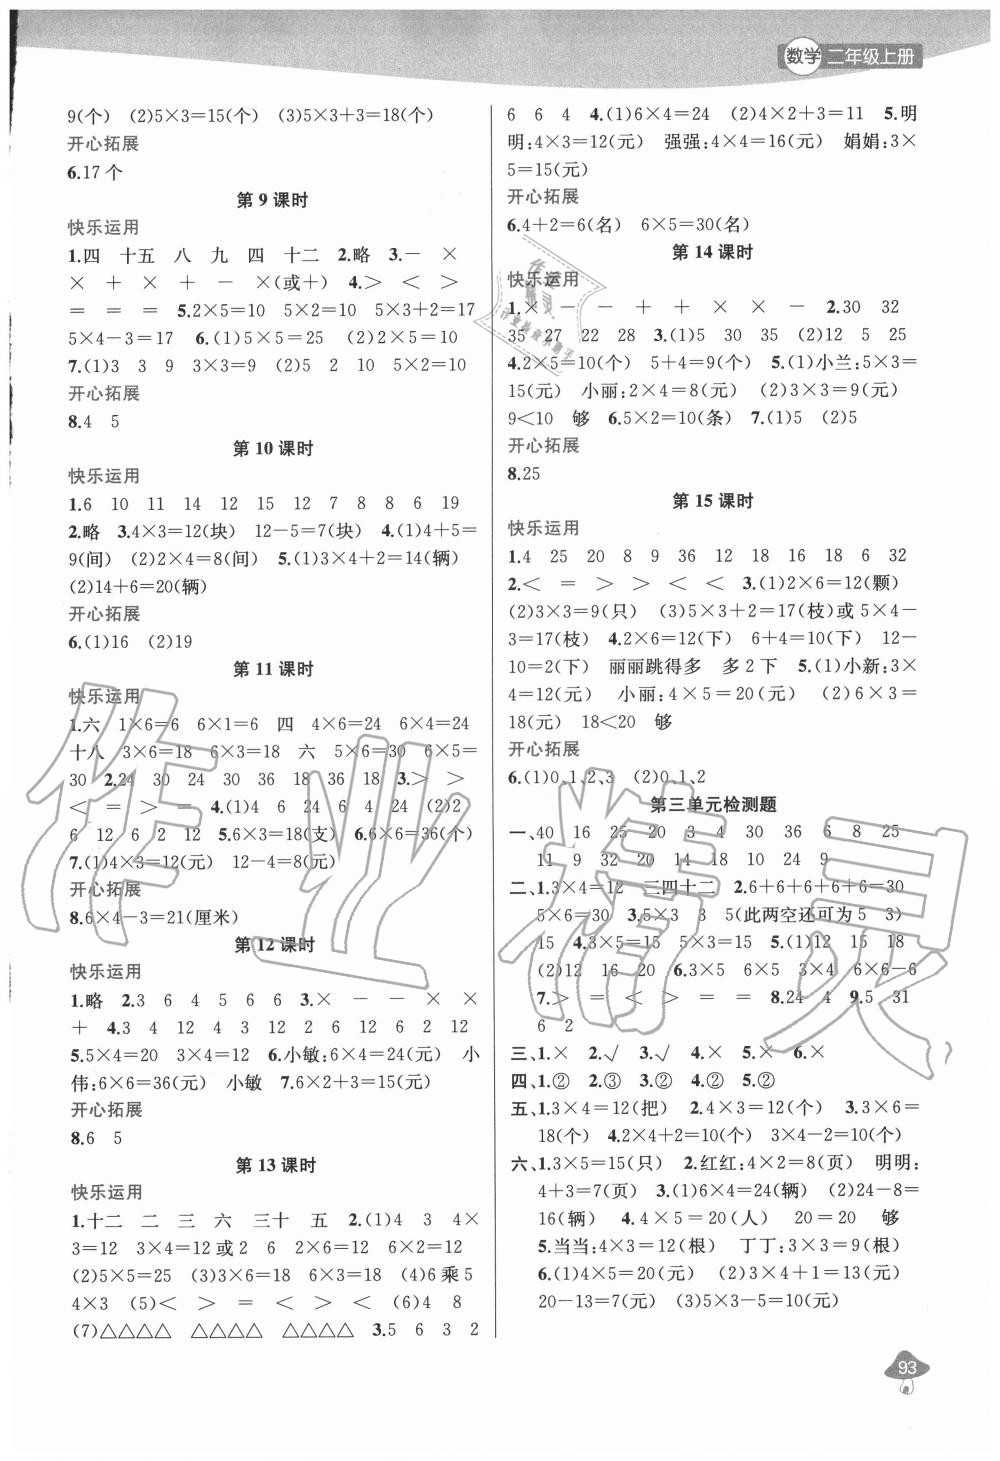 数学 二年级上册
9(个)　(2)5×3=15(个)　(3)5×3+3=18(个)
开心拓展
6.17 个
第 9 课时
快乐运用
1.四　十五　八　九　四　十二　2.略　3.－　×
×　＋　×　＋　－　×(或＋)　4.＞　＜　＞
＝　＝　＝　5.2×5=10　5×2=10　5×3+2=17
5×4-3=17　6.(1)5×5=25　(2)2×5=10
7.(1)3　3　9　3×3=9　(2)5　2　10　5×2=10
开心拓展
8.4　5
第 10 课时
快乐运用
1.6　10　11　14　12　15　12　7　8　8　6　19
2.略　3.4×3=12(块)　12-5=7(块)　4.(1)4+5=
9(间)　(2)2×4=8(间)　5.(1)3×4+2=14(辆)
(2)14+6=20(辆)
开心拓展
6.(1)16　(2)19
第 11 课时
快乐运用
1.六　1×6=6　6×1=6　四　4×6=24　6×4=24
十八　3×6=18　6×3=18　六　5×6=30　6×5=
30　2.24　30　24　30　36　18　36　18　3.＞　＞
＜　＝　＞　＝　4.(1)4　6　24　6　4　24　(2)2
6　12　6　2　12　5.6×3=18(支)　6.6×6=36(个)
7.(1)4×3=12(元)　12-4=8(元)
开心拓展
8.6×4-3=21(厘米)
第 12 课时
快乐运用
1.略　2.3　6　4　5　6　6　3.×　－　－　×　×
＋　4.3　4　12　4　3　12　2　6　12　6　2　12
5.5×4=20　3×4=12　6.小敏:6×4=24(元)　小
伟:6×6=36(元)　小敏　7.6×2+3=15(元)
开心拓展
8.6　5
第 13 课时
快乐运用
1.十二　二　三　六　三十　五　2.(1)4　3　4×
3=12　3×4=12或2　6　2×6=12　6×2=12
(2)5×5=25　(3)3×6=18　6×3=18　(4)6 乘 5
4×3　(5)＜　＞　＝　＜　＞　＜　(6)4　8
(7)△△△△　△△△△　△△△△　3.5　6　3　2
6　6　4　4.(1)6×4=24　(2)4×2+3=11　5.明
明:4×3=12(元)　强强:4×4=16(元)　娟娟:3×
5=15(元)
开心拓展
6.4+2=6(名)　6×5=30(名)
第 14 课时
快乐运用
1.×　－　－　＋　＋　×　×　－　2.30　32
35　27　22　28　3.(1)5　30　35　(2)12　5　25
4.2×5=10(个)　5+4=9(个)　5.(1)小兰:5×3=
15(元)　小丽:2×4=8(元)　(2)3×3=9(元)
9<10　够　6.5×2=10(条)　7.(1)5　(2)5
开心拓展
8.25
第 15 课时
快乐运用
1.4　25　20　8　9　36　12　18　16　18　6　32
2.＜　＝　＞　＞　＜　＜　3.(1)2×6=12(颗)
(2)3×3=9(只)　(3)5×3+2=17(枝)或 5×4-
3=17(枝)　4.2×6=12(下)　6+4=10(下)　12-
10=2(下)　丽丽跳得多　多 2 下　5.(1)小新:3×
4=12(元)　小丽:4×5=20(元)　(2)6×3=
18(元)　18<20　够
开心拓展
6.(1)0、1、2、3　(2)0、1、2
第三单元检测题
一、40　16　25　20　3　4　30　36　6　8　25
11　9　32　20　14　18　10　24　9
二、1.3×4=12　三四十二　2.6+6+6+6+6=30
5×6=30　3.5×3　3　5(此两空还可为 5　3)
15　4.3×5=15　5×3=15　5.(1)12　15　18
(2)12　16　20　6.3×5　6×5　3×4　6×6-6
7.＞　＝　＜　＞　＝　＝　8.24　4　9.5　31
6　2
三、1.×　2.√　3.√　4.×　5.×　6.×
四、1.②　2.③　3.②　4.②　5.②
五、1.3×4=12(把)　2.4×3=12(个)　3.3×6=
18(个)　4.2×4+2=10(个)　3×4-2=10(个)
六、1.3×5=15(只)　2.红红:4×2=8(页)　明明:
4+3=7(页)　3.(1)6×4=24(辆)　(2)24-8=
16(辆)　4.4×5=20(人)　20=20　够
5.当当:4×3=12(根)　丁丁:3×3=9(根)
6.(1)4×5=20(元)　(2)3×4+1=13(元)
20-13=7(元)　(3)5×3-5=10(元)
93
作业精灵